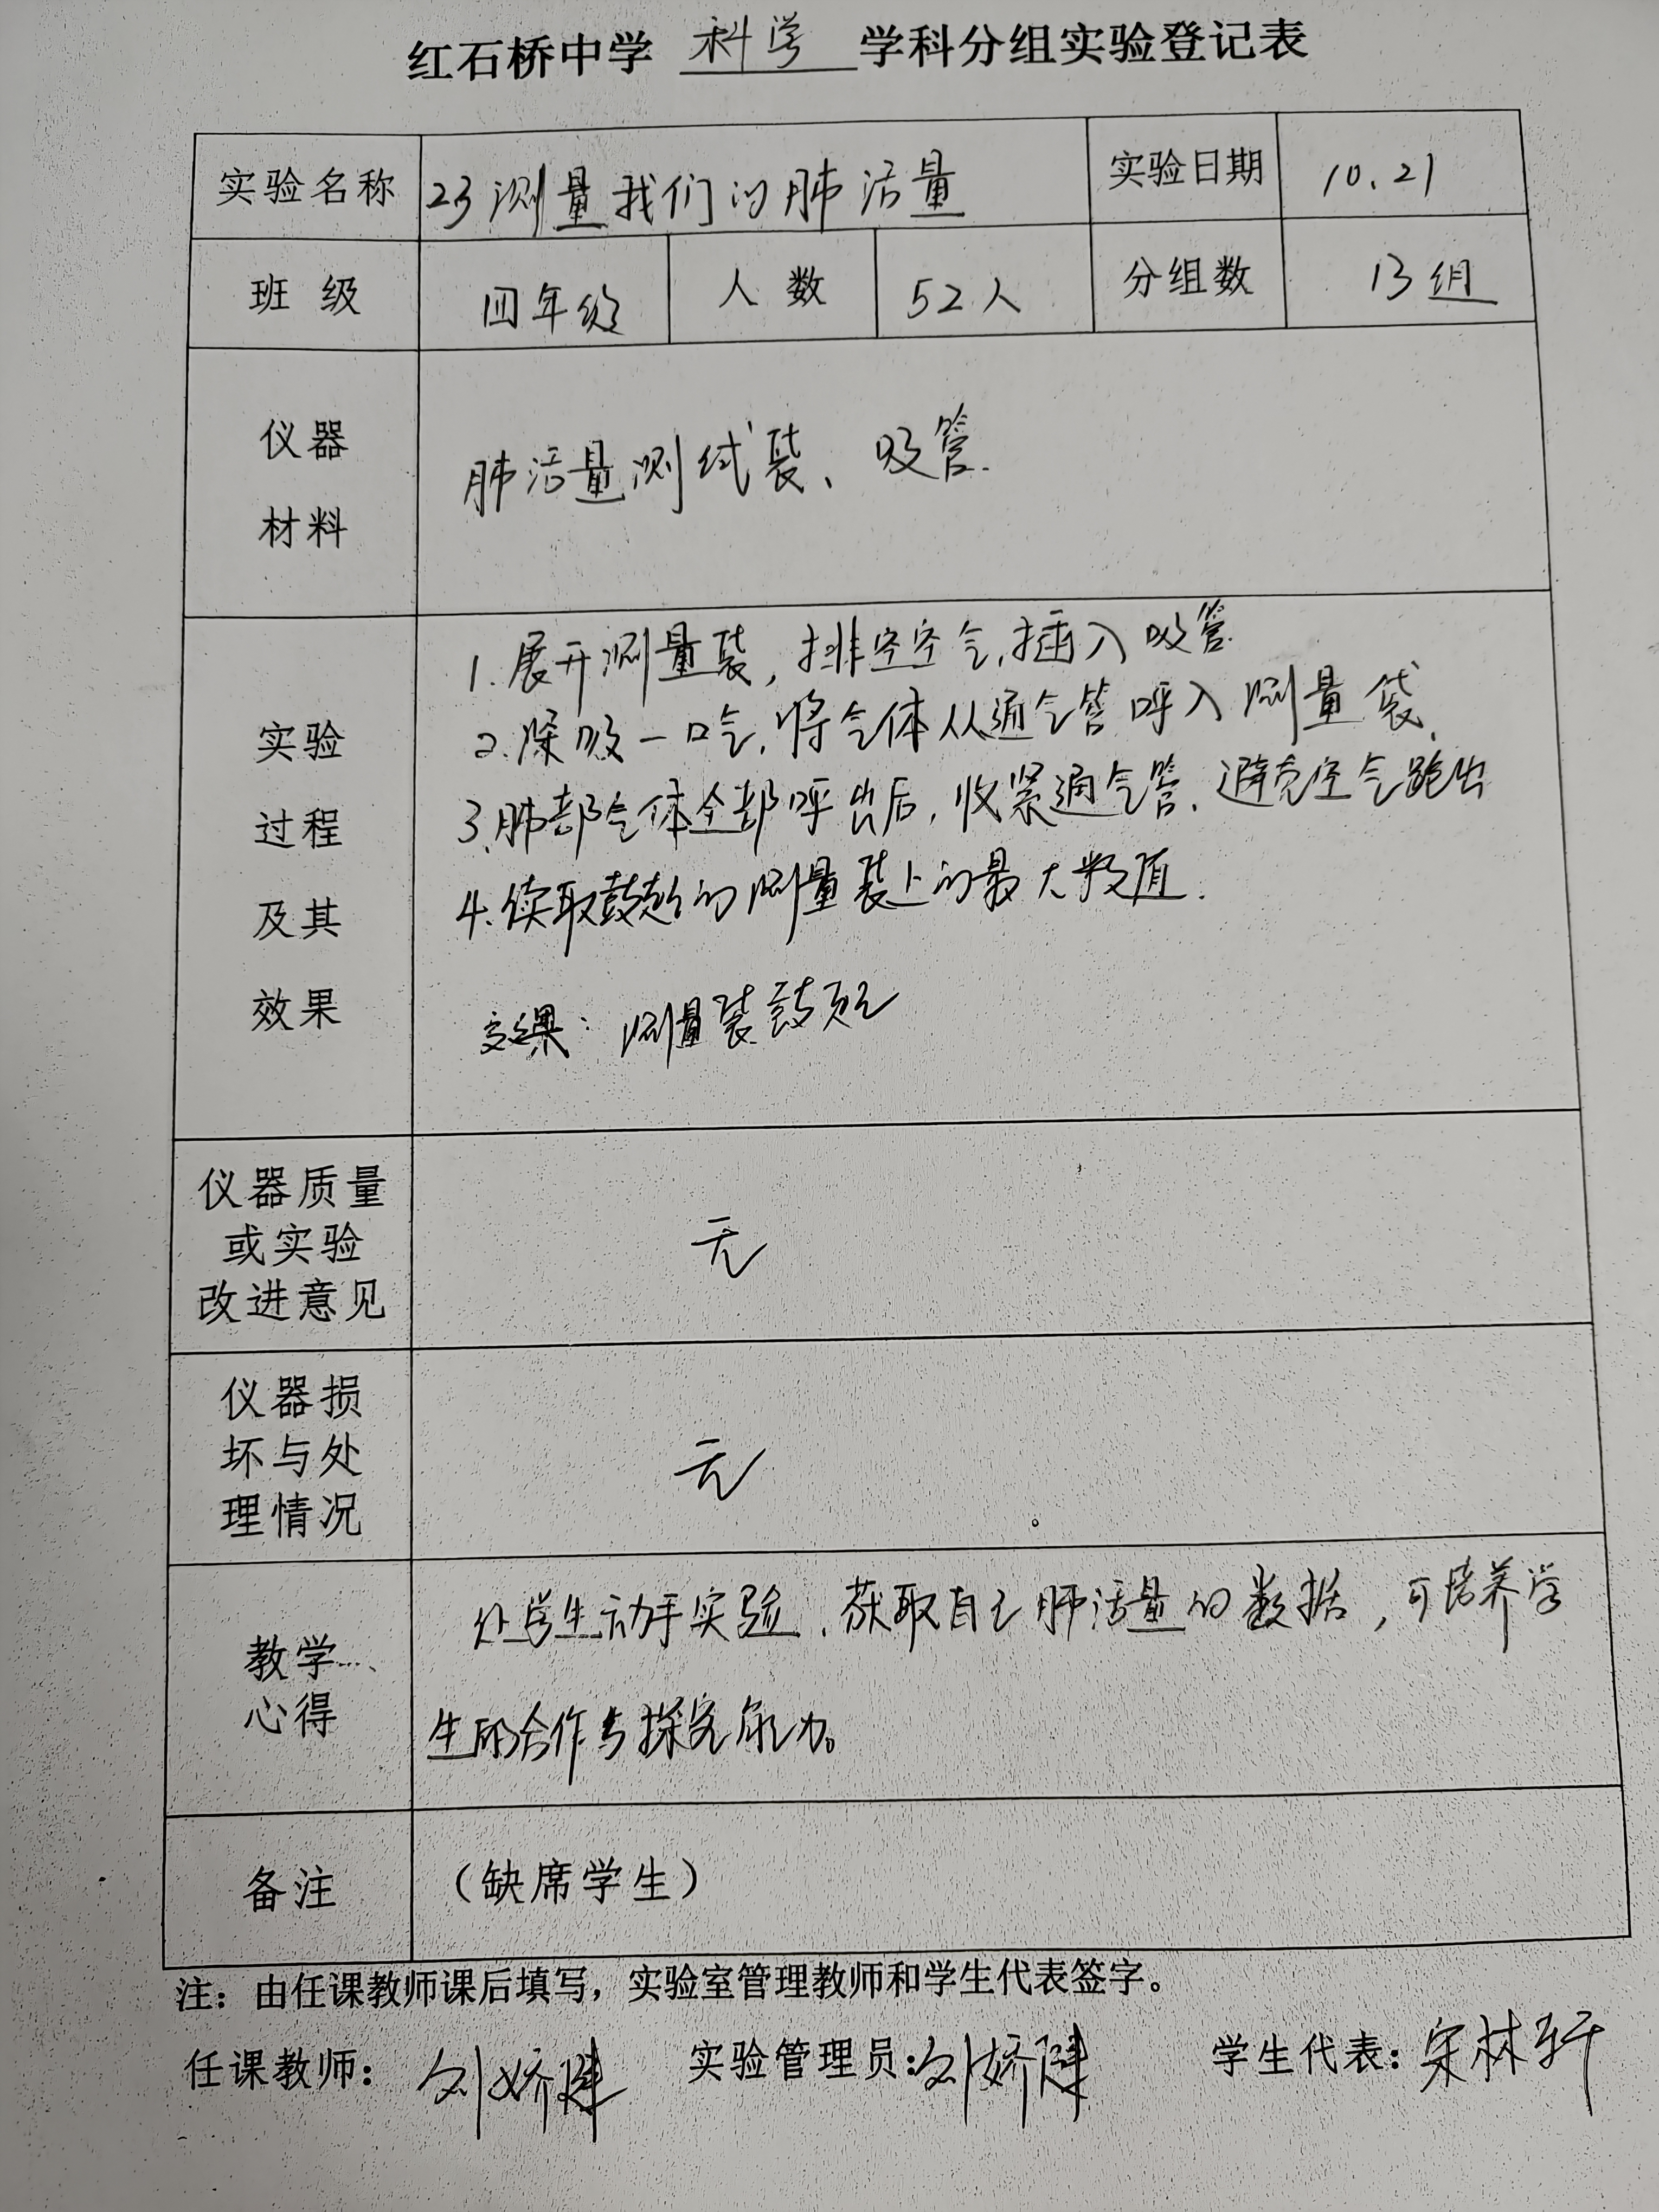 红石桥中学 科学 学科分组实验登记表
实验名称 23测量我们的肺活量 实验日期 10.21
班 级 四年级 人 数 52人 分组数 13组
仪器
材料
肺活量测试装、吸管.
实验
过程
及其
效果
1.展开测量装，排空空气,插入吸管.
2.深吸一口气,将气体从通气管呼入测量袋.
3.肺部气体全部呼出后,收紧通气管、避免空气跑出
4.读取鼓起的测量装上的最大数值.
效果: 测量装鼓
仪器质量
或实验
改进意见
无
仪器损
坏与处
理情况
无
教学
心得
让学生动手实验、获取自己肺活量的数据，可培养学
生的合作与探究能力。
备注 （缺席学生）
注：由任课教师课后填写，实验室管理教师和学生代表签字。
任课教师： 刘娇 实验管理员：刘娇 学生代表：宋林轩